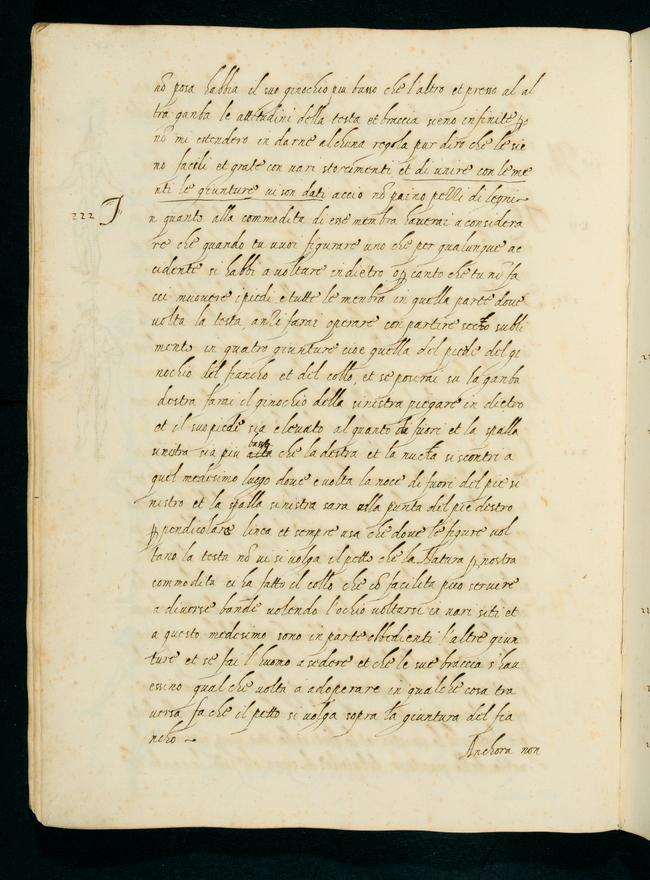 nō posa habbia il suo ginochio piu basso che l'altro et presso al al
tra ganba le attitudini della testa et braccia sieno infinite ꝑ
nō mi estendero in darne alchuna regola pur diro che le sie
no facili et grate con uari storcimenti et di unire con le me
nti le giunture ui son dati accio nō paino pezzi di legni
222 In quanto alla commodita di esse membra hauerai a considera
re che quando tu uuoi figurare uno che per qualunque ac
cidente si habbi a uoltare indietro o ꝑ canto che tu nī fa
cci muouere i piedi e tutte le menbra in quella parte doue
uolta la testa, anzi farai operare con partire scorto subli
mento in quatro giunture cioe quella del piede del gi
nochio del fiancho et del collo, et se poserai su la ganba
destra farai il ginochio della sinistra piegare in dietro
et il suo piede sia eleuato alquanto di fuori et la spalla
sinistra sia piu bassa che la destra et la nucha si scontri a
quel medesimo luogo doue e uolta la noce di fuori del pie si
nistro et la spalla sinistra sara alla punta del pie destro
ꝑ pendicolare linea et sempre usa che doue le figure uol
tano la testa nō ui si uolga il petto che la Natura ꝑ nostra
commodita ci ha fatto il collo che cō facilita puo seruire
a diuerse bande uolendo l'ochio uoltarsi in uari siti et
a questo medesimo sono in parte obbedienti l'altre giun
ture et se fai l'huomo a sedere et che le sue braccia s'hau
essino qual che uolta a adoperare in qualche cosa tra
uersa fa che il petto si uolga sopra la giuntura del fia
ncho ~
Anchora non